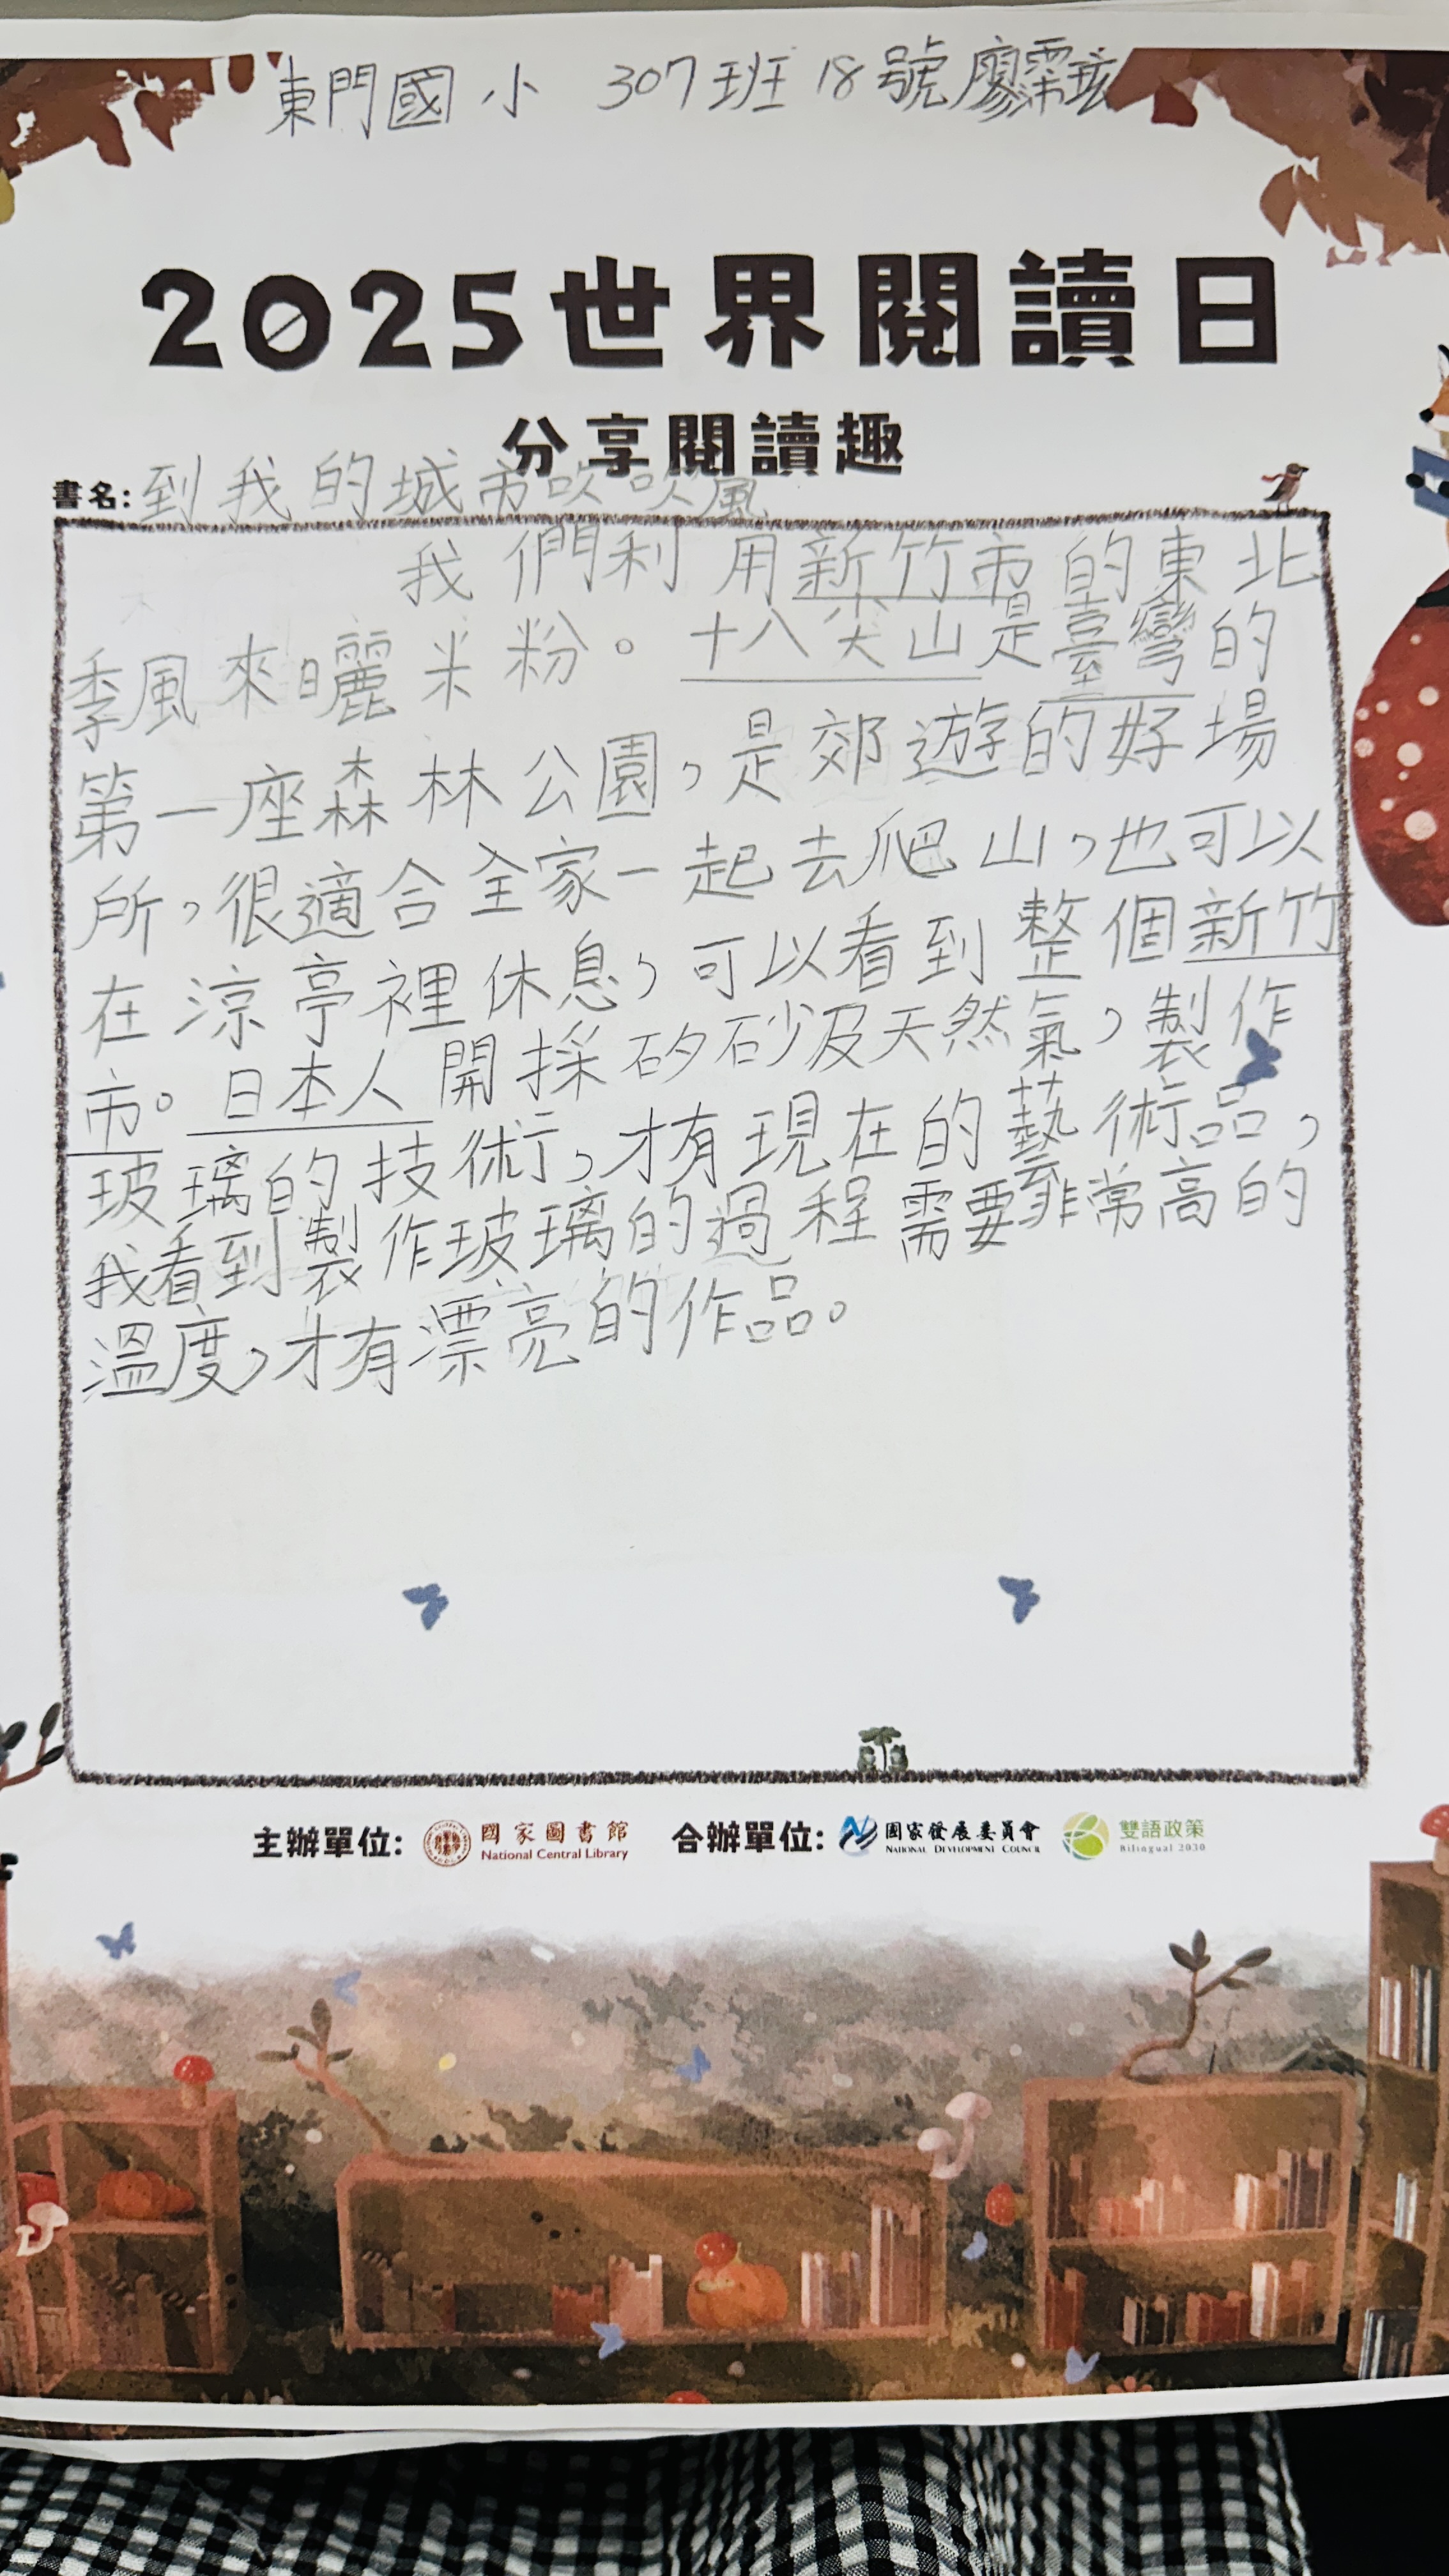 東門國小 307班 18號廖霈玹
2025世界閱讀日
分享閱讀趣
書名:到我的城市吹吹風
我們利用新竹市的東北
季風來曬米粉。十八尖山是臺灣的
第一座森林公園,是郊遊的好場
所,很適合全家一起去爬山,也可以
在涼亭裡休息,可以看到整個新竹
市。日本人開採矽砂及天然氣,製作
玻璃的技術,才有現在的藝術品,
我看到製作玻璃的過程需要非常高的
溫度,才有漂亮的作品。
主辦單位: 國家圖書館 合辦單位: 國家發展委員會 雙語政策
National Central Library NATIONAL DEVELOPMENT COUNCIL Bilingual 2030